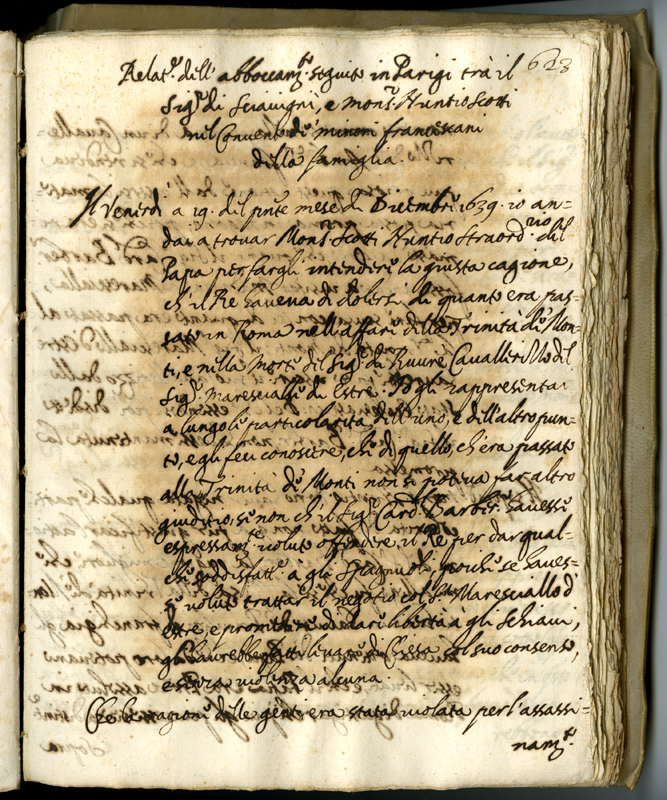 623
Relat.e dell' abboccam.to seguito in Parigi trà il
Sig.r di Sciavignì, e mons.r Nuntio Scotti
nel Convento de' minori francescani
della famiglia.
Il Venerdì a 19. del p̄nte mese di Dicembre 1639. io an=
dai a trovar Mons.r Scotti Nuntio straord.rio del
Papa per fargli intendere la giusta cagione,
ch' il Rè haveva di dolersi di quanto era pas=
sato in Roma nell' affari della Trinità de' Mon=
ti, e nella morte del Sig.r di Ruure Cavallerizzo del
Sig.r maresciallo di Estrè. Egli rappresentai
a lungo le particolarità dell' uno, e dell' altro pun=
to, e gli feci conoscere, che di quello, ch' era passato
alla Trinità de' Monti non si poteva far altro
giuditio, se non che il Sig.r Card. Barber. havesse
espressam.te voluto offendere il Re per dar qual=
che soddisfatt.e a gli Spagnuoli, poiche se haves=
se voluto trattar il negotio col S.r Maresciallo d'
Estrè, e promettere di dare libertà à gli schiavi,
gl' haurebbe fatti levare di Chiesa col suo consenso,
e senza violenza alcuna.
Che la ragione delle genti era stata violata per l' assassi=
nam.to